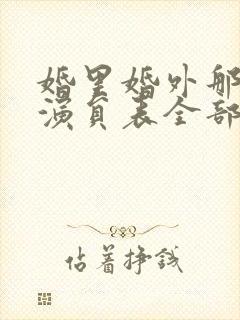 婚里婚外那
演员表全部
估着挣钱